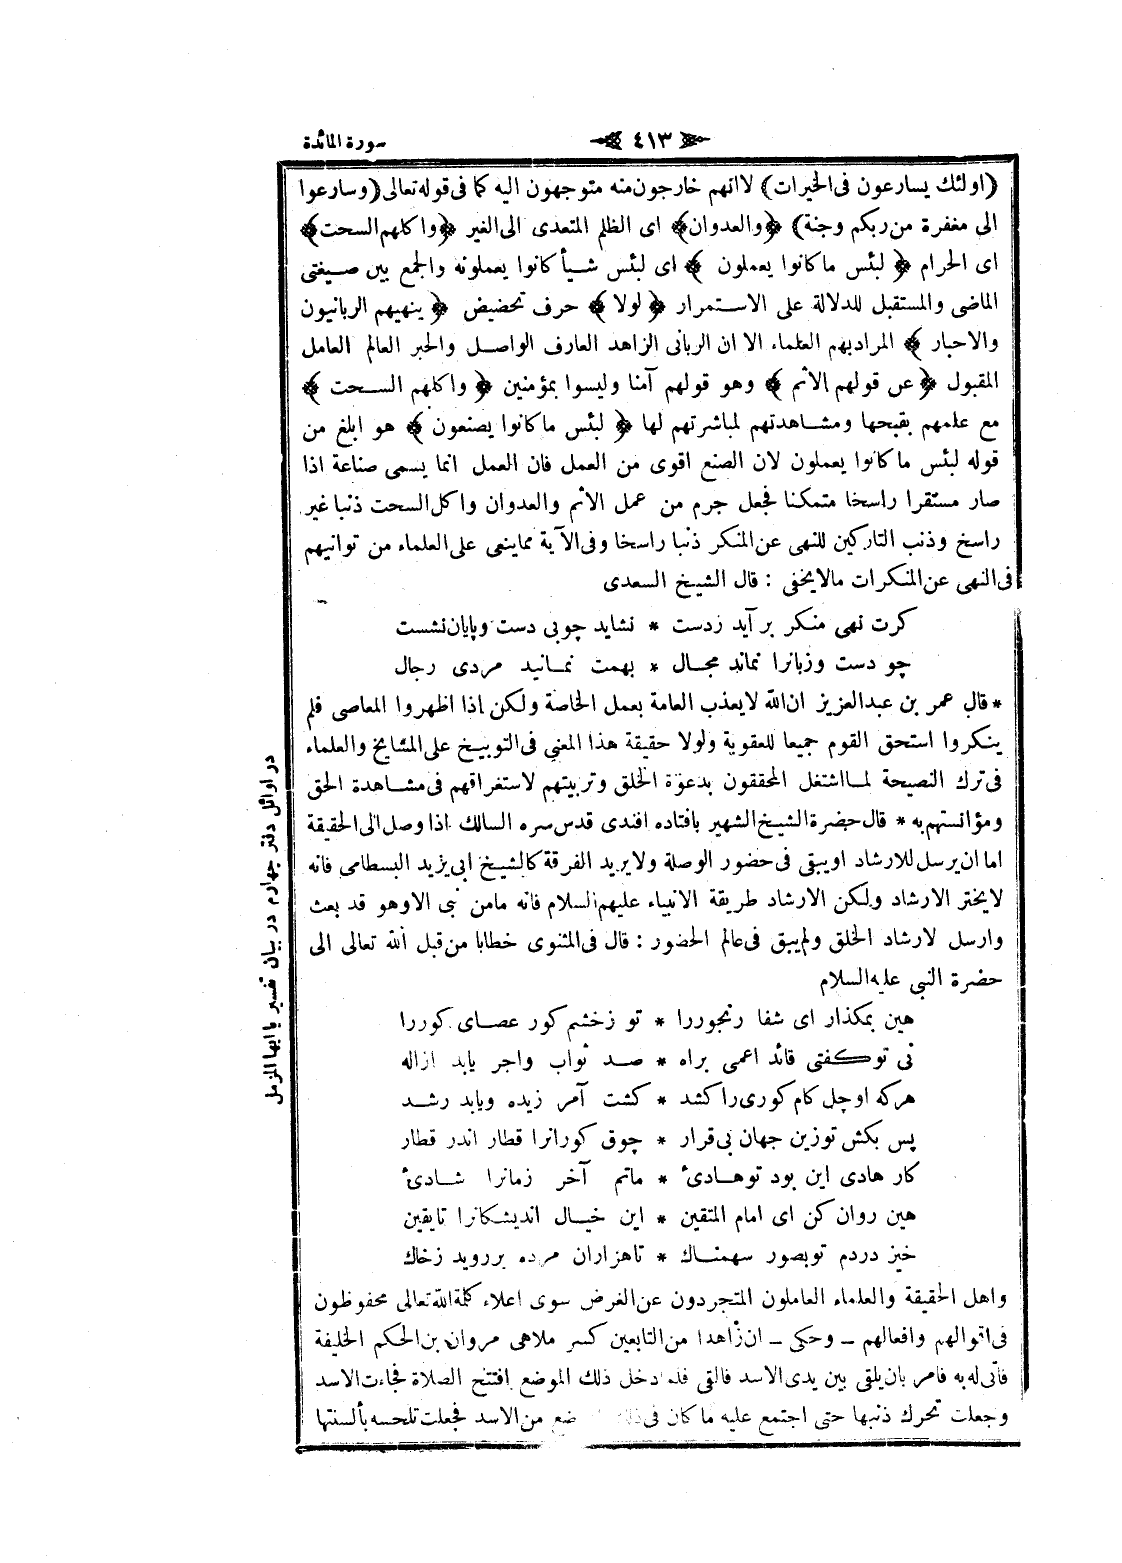 سورة المائدة
﴿ ٤١٣ ﴾
(اولئك يسارعون فى الخيرات) لا انهم خارجون منه متوجهون اليه كما فى قوله تعالى (وسارعوا
الى مغفرة من ربكم وجنة) ﴿ والعدوان ﴾ اى الظلم المتعدى الى الغير ﴿ واكلهم السحت ﴾
اى الحرام ﴿ لبئس ما كانوا يعملون ﴾ اى لبئس شيأ كانوا يعملونه والجمع بين صيغتى
الماضى والمستقبل للدلالة على الاستمرار ﴿ لولا ﴾ حرف تحضيض ﴿ ينهيهم الربانيون
والاحبار ﴾ المراد بهم العلماء الا ان الربانى الزاهد العارف الواصل والحبر العالم العامل
المقبول ﴿ عن قولهم الأثم ﴾ وهو قولهم آمنا وليسوا بمؤمنين ﴿ واكلهم السحت ﴾
مع علمهم بقبحها ومشاهدتهم لمباشرتهم لها ﴿ لبئس ما كانوا يصنعون ﴾ هو ابلغ من
قوله لبئس ما كانوا يعملون لان الصنع اقوى من العمل فان العمل انما يسمى صناعة اذا
صار مستقرا راسخا متمكنا فجعل جرم من عمل الأثم والعدوان واكل السحت ذنبا غير
راسخ وذنب التاركين للنهى عن المنكر ذنبا راسخا وفى الآية مما ينعى على العلماء من توانيهم
فى النهى عن المنكرات مالايخفى : قال الشيخ السعدى
كرت نهى منكر بر آيد زدست * نشايد چوبى دست وپايان نشست
چو دست وزبانرا نماند مجال * بهمت نمانيد مردى رجال
* قال عمر بن عبدالعزيز ان الله لايعذب العامة بعمل الخاصة ولكن اذا اظهروا المعاصى فلم
ينكروا استحق القوم جميعا للعقوبة ولولا حقيقة هذا المعنى فى التوبيخ على المشايخ والعلماء
فى ترك النصيحة لما اشتغل المحققون بدعوة الخلق وتربيتهم لاستغراقهم فى مشاهدة الحق
ومؤانستهم به * قال حضرة الشيخ الشهير بافتاده افندى قدس سره السالك اذا وصل الى الحقيقة
اما ان يرسل للارشاد او يبقى فى حضور الوصلة ولا يريد الفرقة كالشيخ ابى يزيد البسطامى فانه
لايختر الارشاد ولكن الارشاد طريقة الانبياء عليهم السلام فانه مامن نبى الا وهو قد بعث
وارسل لارشاد الخلق ولم يبق فى عالم الحضور : قال فى المثنوى خطابا من قبل الله تعالى الى
حضرة النبى عليه السلام
هين بمكذار اى شفا رنجوررا * تو زخشم كور عصاى كوررا
نى توكفتى قائد اعمى براه * صد ثواب واجر يابد ازاله
هركه او چل كام كورى را كشد * كشت آمر زيده ويابد رشد
پس بكش توزين جهان بى قرار * جوق كورانرا قطار اندر قطار
كار هادى اين بود تو هادئ * ماتم آخر زمانرا شادئ
هين روان كن اى امام المتقين * اين خيال انديشكانرا تا يقين
خيز دردم تو بصور سهمناك * تاهزاران مرده برر ويد زخاك
واهل الحقيقة والعلماء العاملون المتجردون عن الغرض سوى اعلاء كلمة الله تعالى محفوظون
فى اتوالهم وافعالهم ــ وحكى ــ ان زاهدا من التابعين كسر ملاهى مروان بن الحكم الخليفة
فأتى له به فامر بان يلقى بين يدى الاسد فالقى فلما دخل ذلك الموضع افتتح الصلاة فجاءت الاسد
وجعلت تحرك ذنبها حتى اجتمع عليه ما كان فى ذلك ضع من الاسد فجعلت تلحسه بألسنتها
در اوائل دفتر چهارم در بيان تفسير يا ايها المزمل